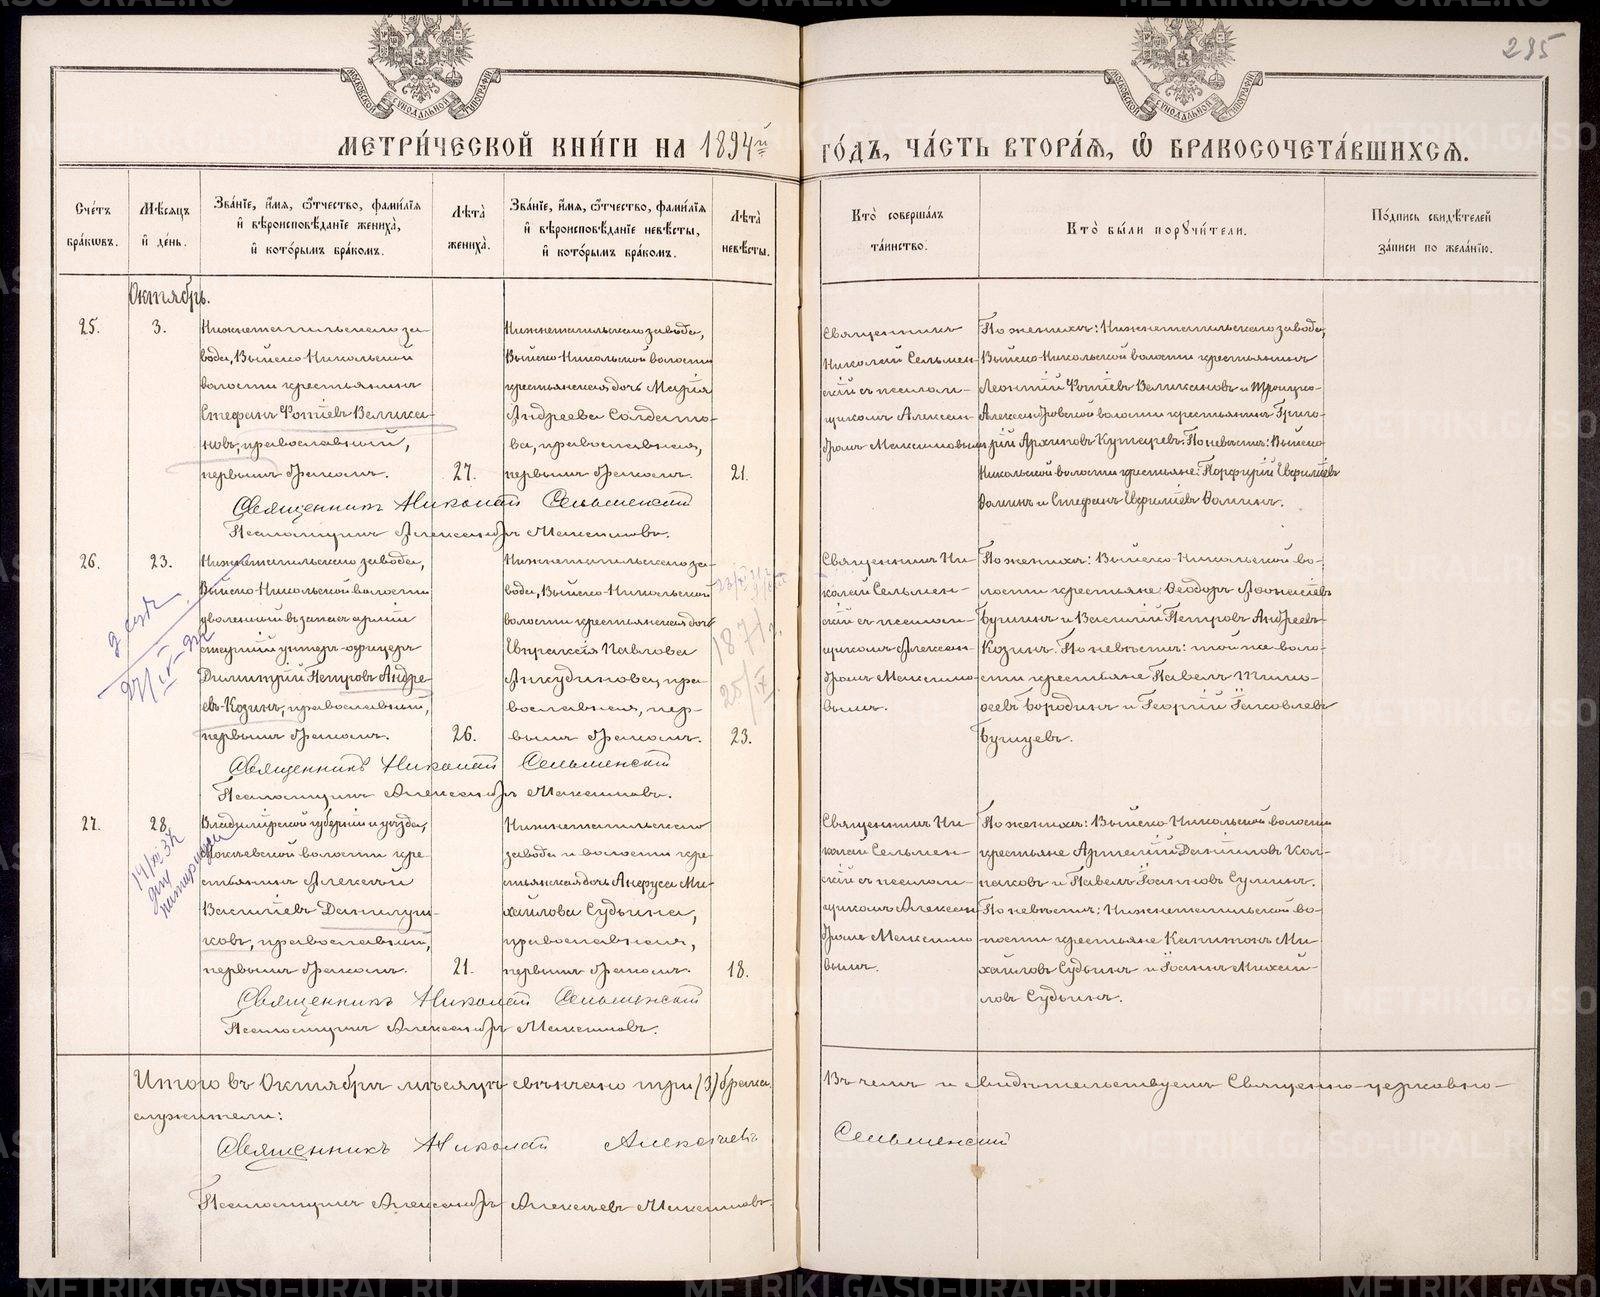 295
МОСКОВСКОЙ СѴНОДАЛЬНОЙ ТИПОГРАФІИ
МОСКОВСКОЙ СѴНОДАЛЬНОЙ ТИПОГРАФІИ
МЕТРИ́ЧЕСКОЙ КНИ́ГИ НА 1894й ГО́ДЪ, ЧА́СТЬ ВТОРА́Ѧ, Ѡ҆ БРАКОСОЧЕТА́ВШИХСѦ.
Сче́тъ бра́кѡвъ.
Мѣ́сѧцъ и҆ де́нь.
Зва́нїе, и҆́мѧ, ѻ҆́тчество, фами́лїѧ и҆ вѣроисповѣ́данїе жениха̀, и҆ кото́рымъ бра́комъ.
Лѣ́та жениха̀.
Зва́нїе, и҆́мѧ, ѻ҆́тчество, фами́лїѧ и҆ вѣроисповѣ́данїе невѣ́сты, и҆ кото́рымъ бра́комъ.
Лѣ́та невѣ́сты.
Кто̀ соверша́лъ та́инство.
Кто̀ бы́ли порꙋчи́тели.
По́дпись свидѣ́телей за́писи по жела́нїю.
Октябрь.
25.
3.
Нижнетагильскаго за-
вода, Выйско-Никольской
волости крестьянинъ
Стефанъ Фотіевъ Велика-
новъ, православный,
первымъ бракомъ.
27.
Нижнетагильскаго завода,
Выйско-Никольской волости
крестьянская дочь Марія
Андреева Солдато-
ва, православная,
первымъ бракомъ.
21.
Священникъ
Николай Сельмен-
скій съ псалом-
щикомъ Алексан-
дромъ Максимовымъ
По женихѣ: Нижнетагильскаго завода,
Выйско-Никольской волости крестьянинъ
Леонтій Фотіевъ Великановъ и Троицко-
Александровской волости крестьянинъ Григо-
рій Архиповъ Кутыревъ. По невѣстѣ: Выйско
Никольской волости крестьяне: Порфирій Евфиміевъ
Фоминъ и Стефанъ Евфиміевъ Фоминъ.
Священникъ Николай Сельменскій
Псаломщикъ Александръ Максимовъ.
26.
23.
Нижнетагильскаго завода,
Выйско-Никольской волости
уволенный въ запасъ арміи
старшій унтеръ-офицеръ
Димитрій Петровъ Андре-
евъ-Козинъ, православный,
первымъ бракомъ.
26.
Нижнетагильскаго за-
вода, Выйско-Никольской
волости крестьянская дочь
Евпраксія Павлова
Анкудинова, пра-
вославная, пер-
вымъ бракомъ.
23.
1871 г.
25/IX
Священникъ Ни-
колай Сельмен-
скій съ псалом-
щикомъ Алексан-
дромъ Максимо-
вымъ.
По женихѣ: Выйско-Никольской во-
лости крестьяне: Ѳеодоръ Аѳонасіевъ
Бушинъ и Василій Петровъ Андреевъ-
Козинъ. По невѣстѣ: той же воло-
сти крестьяне Павелъ Тимо-
ѳеевъ Бородинъ и Георгій Іаковлевъ
Бушуевъ.
Священникъ Николай Сельменскій
Псаломщикъ Александръ Максимовъ.
27.
28.
Владимірской губерніи и уѣзда,
волости кре-
стьянинъ Алексѣй
Васильевъ Данилуш-
ковъ, православный,
первымъ бракомъ.
21.
Нижнетагильскаго
завода и волости кре-
стьянская дочь Анфуса Ми-
хайлова Судьина,
православная,
первымъ бракомъ.
18.
Священникъ Ни-
колай Сельмен-
скій съ псалом-
щикомъ Алексан-
дромъ Максимо-
вымъ.
По женихѣ: Выйско-Никольской волости
крестьяне Артемій Даниловъ Кол-
паковъ и Павелъ Іоанновъ Сулинъ.
По невѣстѣ: Нижнетагильской во-
лости крестьяне Капитонъ Ми-
хайловъ Судьинъ и Іоаннъ Михай-
ловъ Судьинъ.
Священникъ Николай Сельменскій
Псаломщикъ Александръ Максимовъ.
Итого въ Октябрѣ мѣсяцѣ свѣнчано три (3) брака. Въ чемъ и свидѣтельствуемъ Священно-церковно-
служители:
Священникъ Николай Алексѣевъ Сельменскій
Псаломщикъ Александръ Алексѣевъ Максимовъ.
METRIKI.GASO-URAL.RU